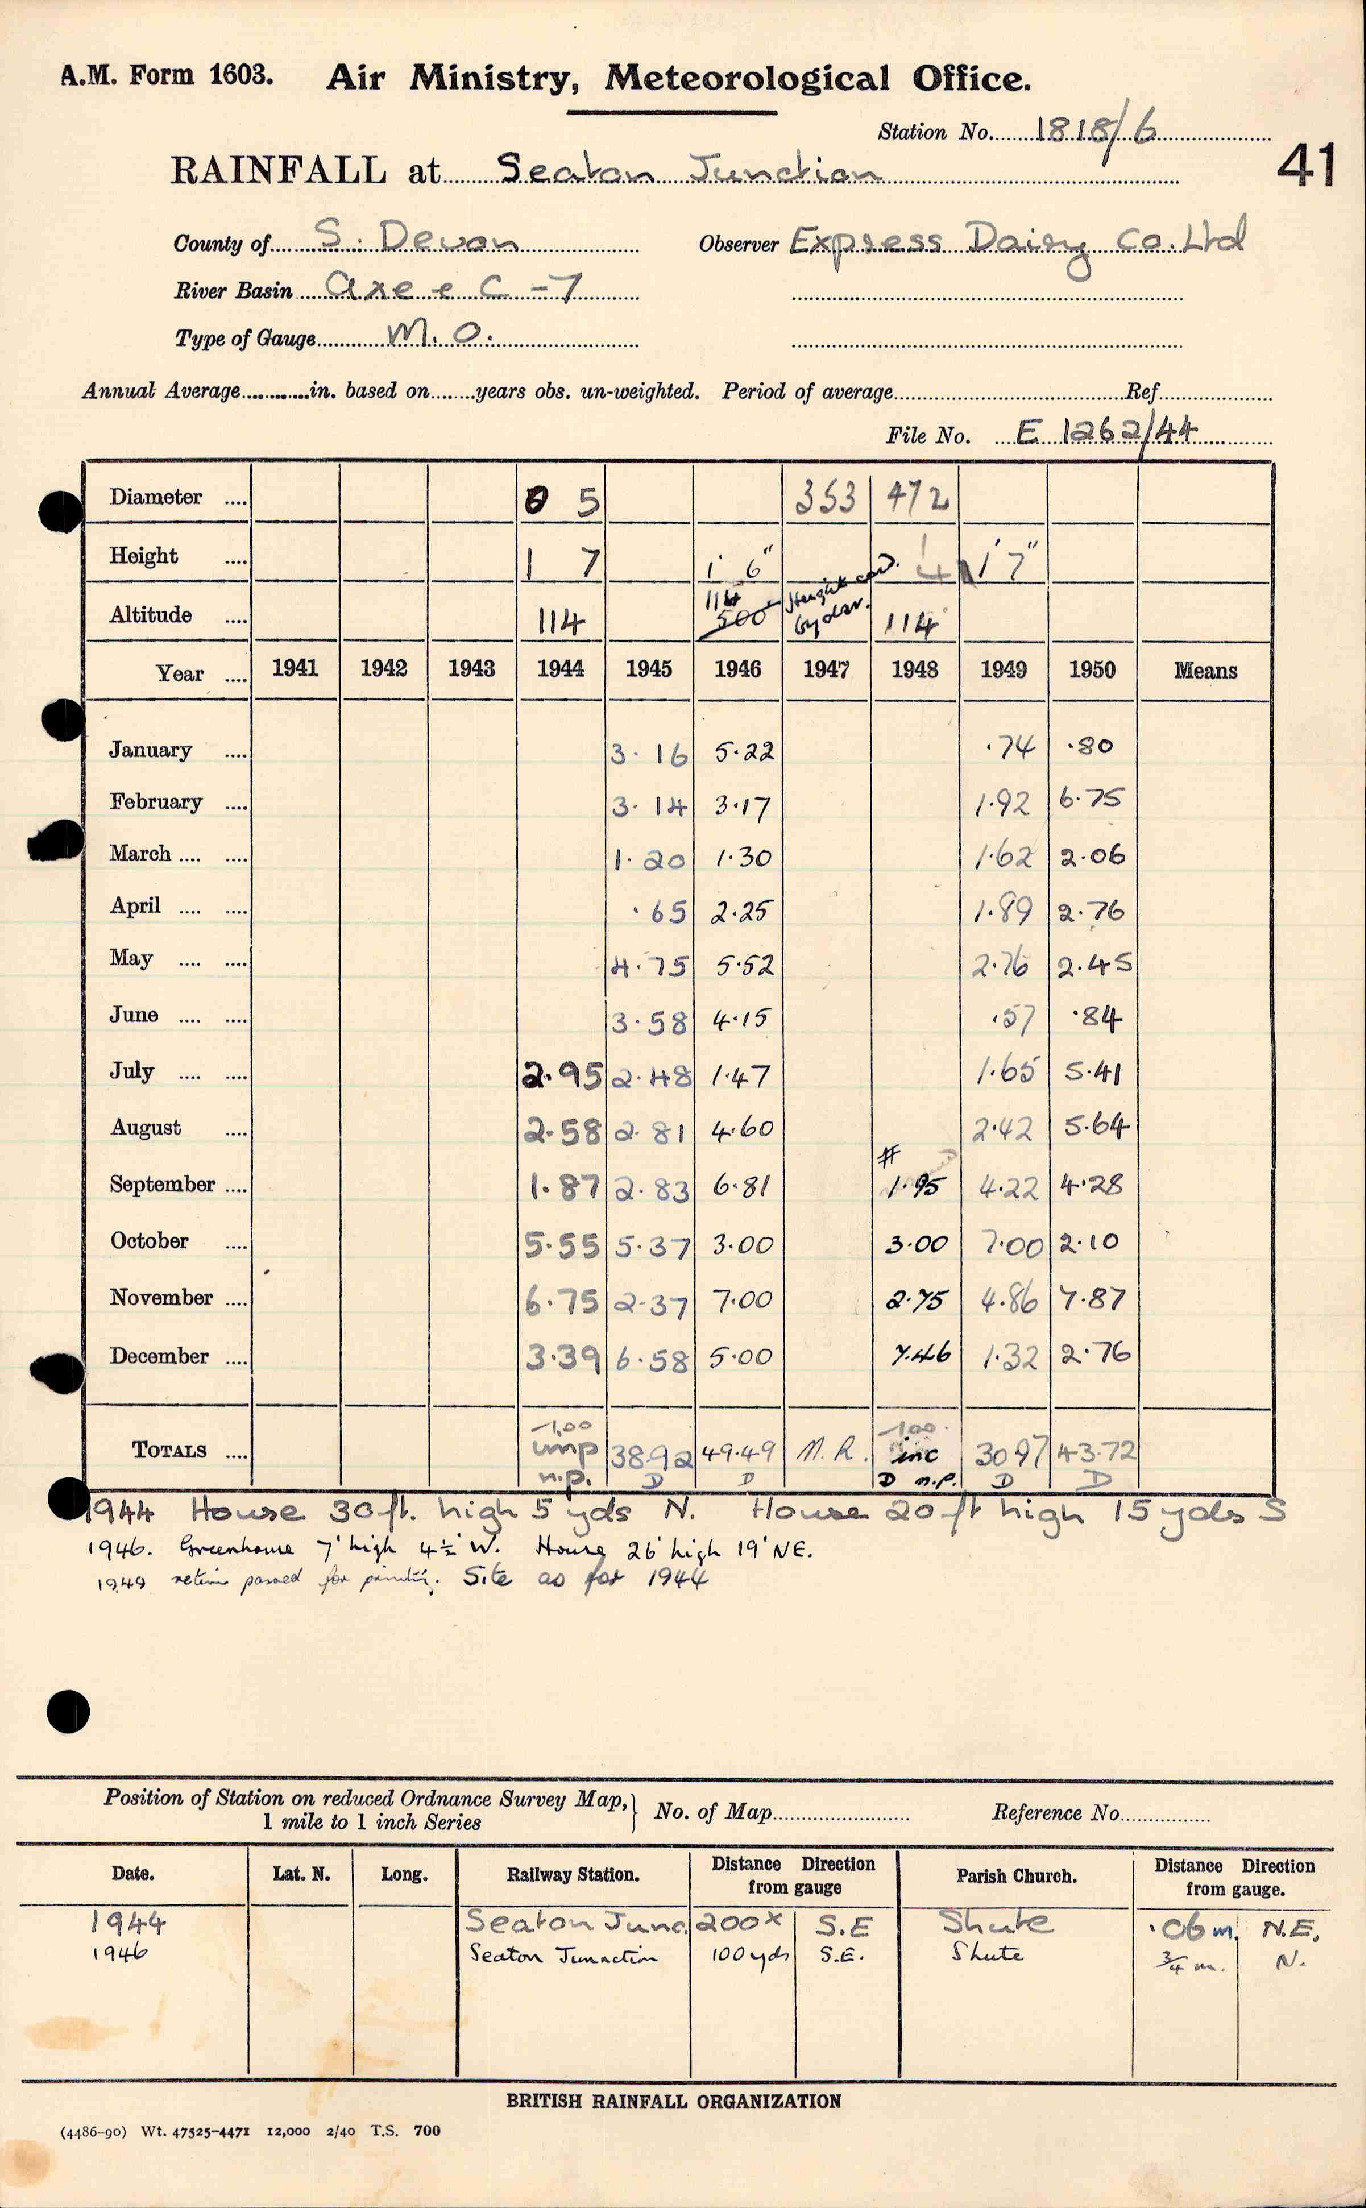 A.M. Form 1603. Air Ministry, Meteorological Office.
Station No. 1818/6
41
RAINFALL at Seaton Junction
County of S. Devon Observer Express Dairy Co. Ltd
River Basin Axe e C -7
Type of Gauge M.O.
Annual Average in. based on years obs. un-weighted. Period of average Ref.
File No. E 1262/44
Diameter .... 0 5 353 472
Height .... 1 7 1' 6" 1' 7"
Altitude .... 114 114 500 114
Year .... 1941 1942 1943 1944 1945 1946 1947 1948 1949 1950 Means
January .... 3.16 5.22 .74 .80
February .... 3.14 3.17 1.92 6.75
March .... .... 1.20 1.30 1.62 2.06
April .... .... .65 2.25 1.89 2.76
May .... .... 4.75 5.52 2.76 2.45
June .... .... 3.58 4.15 .57 .84
July .... .... 2.95 2.48 1.47 1.65 5.41
August .... 2.58 2.81 4.60 2.42 5.64
September .... 1.87 2.83 6.81 # 1.95 4.22 4.28
October .... 5.55 5.37 3.00 3.00 7.00 2.10
November .... 6.75 2.37 7.00 2.75 4.86 7.87
December .... 3.39 6.58 5.00 7.46 1.32 2.76
1.00 1.00
TOTALS .... 38.92 49.49 N.R. inc 30.97 43.72
n.p. D D D n.p. D D
1944 House 30 ft. high 5 yds N. House 20 ft high 15 yds S
1946. Greenhouse 7' high 4½' W. House 26' high 19' NE.
1949 return passed for printing. Site as for 1944
Position of Station on reduced Ordnance Survey Map, 1 mile to 1 inch Series } No. of Map Reference No.
Date. Lat. N. Long. Railway Station. Distance Direction from gauge Parish Church. Distance Direction from gauge.
1944 Seaton Junc. 200x S.E Shute .06 m. N.E.
1946 Seaton Junction 100 yds S.E. Shute ¾ m. N.
BRITISH RAINFALL ORGANIZATION
(4486-90) Wt. 47525-4471 12,000 2/40 T.S. 700